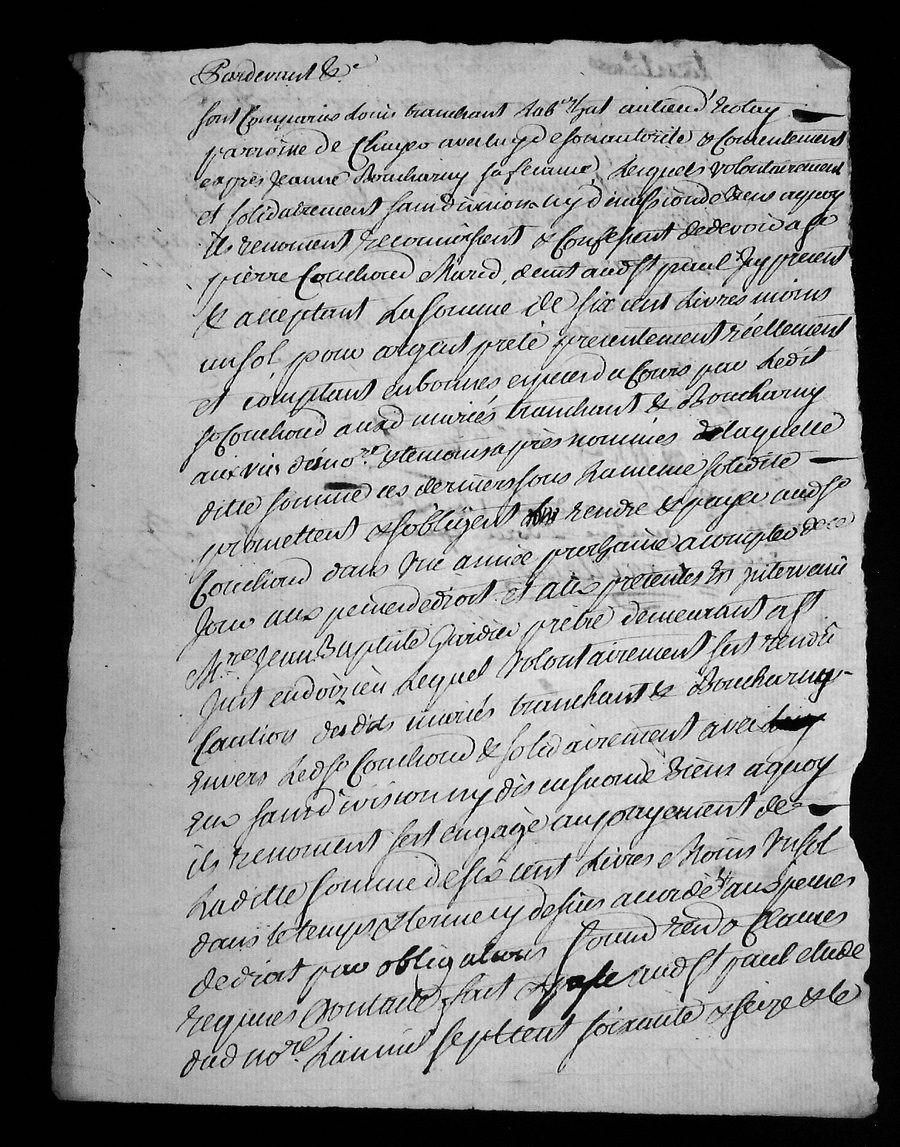 Pardevant &c
sont Comparus Louis tranchant Lab.r hat au lieu d'
parroisse de Chuyer avec luy de son autorité & Consentement
exprès Jeanne Boucharny sa femme, Lesquels volontairement
et solidairement sans division ny d'emission de biens a quoy
ils renoncent reconnoissent & Confessent de devoir a Sr
pierre Couchoud Marcd. demt. aud St paul Icy present
& acceptant La somme de six cent Livres moins
un sol, pour argent preté presentement réellement
et comptant en bonnes especes du Cours par Ledit
Sr Couchoud aux d mariés tranchant & Boucharny
aux vûs des no.re & temoins après nommés de laquelle
ditte somme ces derniers sous La meme solidité
promettent & s'obligent rendre & payer aud Sr
Couchoud dans une année prochaine a compter de ce
Jour aux peines de droit et aux presentes est intervenu
M.re Jean Baptiste prêtre demeurant a St
Just en doizieu Lequel volontairement s'est rendu
Caution desdits mariés tranchant & Boucharny
Envers Led Sr Couchoud & solidairement avec
Eux sans division ny discussion de biens a quoy
ils renoncent s'est engagé au payement de
Laditte somme de six cent Livres Moins Un sol
dans le temps & terme cy dessus accordé aux peines
de droit par obligations Soumons renons & Clauses
requises dont acte fait & passé aud St paul etude
dud no.re L'an mil sept cent soixante & seize & le